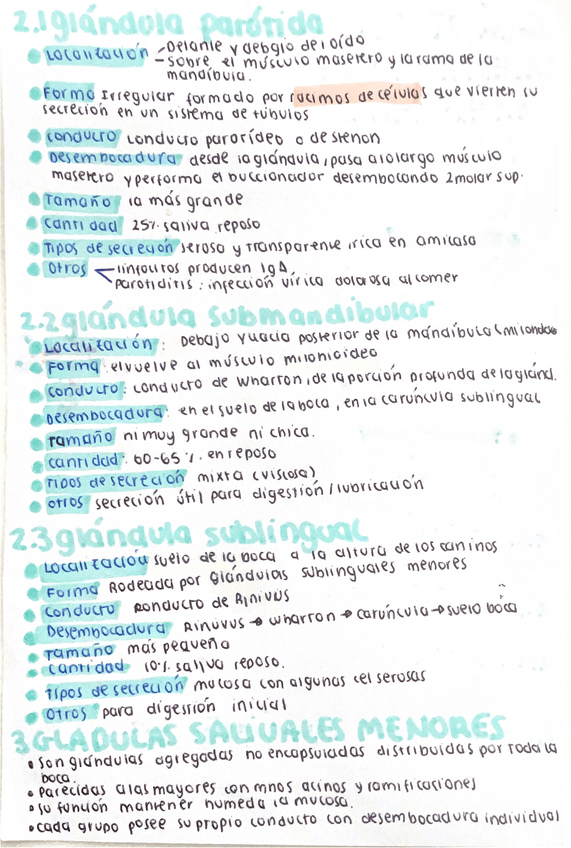 2.1 glándula parótida
Localización - Delante y debajo del oído
- Sobre el músculo masetero y la rama de la
mandíbula.
Forma Irregular formado por racimos de células que vierten su
secreción en un sistema de túbulos
Conducto conducto parotídeo o de stenon
Desembocadura desde la glándula, pasa a lo largo músculo
masetero y performa el buccionador desembocando 2molar sup.
Tamaño la más grande
Cantidad 25% saliva reposo
Tipos de secreción seroso y transparente rica en amilasa
Otros linfocitos producen IgA
Parotiditis: infección vírica dolorosa al comer
2.2 glándula submandibular
Localización: Debajo y hacia posterior de la mandíbula
Forma: elvuelve al músculo milohioideo
Conducto: conducto de Wharron, de la porción profunda de la gland.
Desembocadura: en el suelo de la boca, en la carúncula sublingual
Tamaño ni muy grande ni chica.
Cantidad: 60-65 % en reposo
Tipos de secreción mixta (viscosa)
Otros secreción útil para digestión / lubricación
2.3 glándula sublingual
Localización suelo de la boca a la altura de los caninos
Forma Rodeada por Glándulas sublinguales menores
Conducto Conducto de Rivinus
Desembocadura Rinuvus → Wharron → carúncula → suelo boca
Tamaño más pequeña
Cantidad 10% saliva reposo.
Tipos de secreción mucosa con algunas cel serosas
Otros para digestión inicial
3 GLADULAS SALIVALES MENORES
• son glándulas agregadas no encapsuladas distribuidas por toda la
boca.
• parecidas a las mayores con mnos acinos y ramificaciones
• su función mantener humeda la mucosa.
• cada grupo posee su propio conducto con desembocadura individual